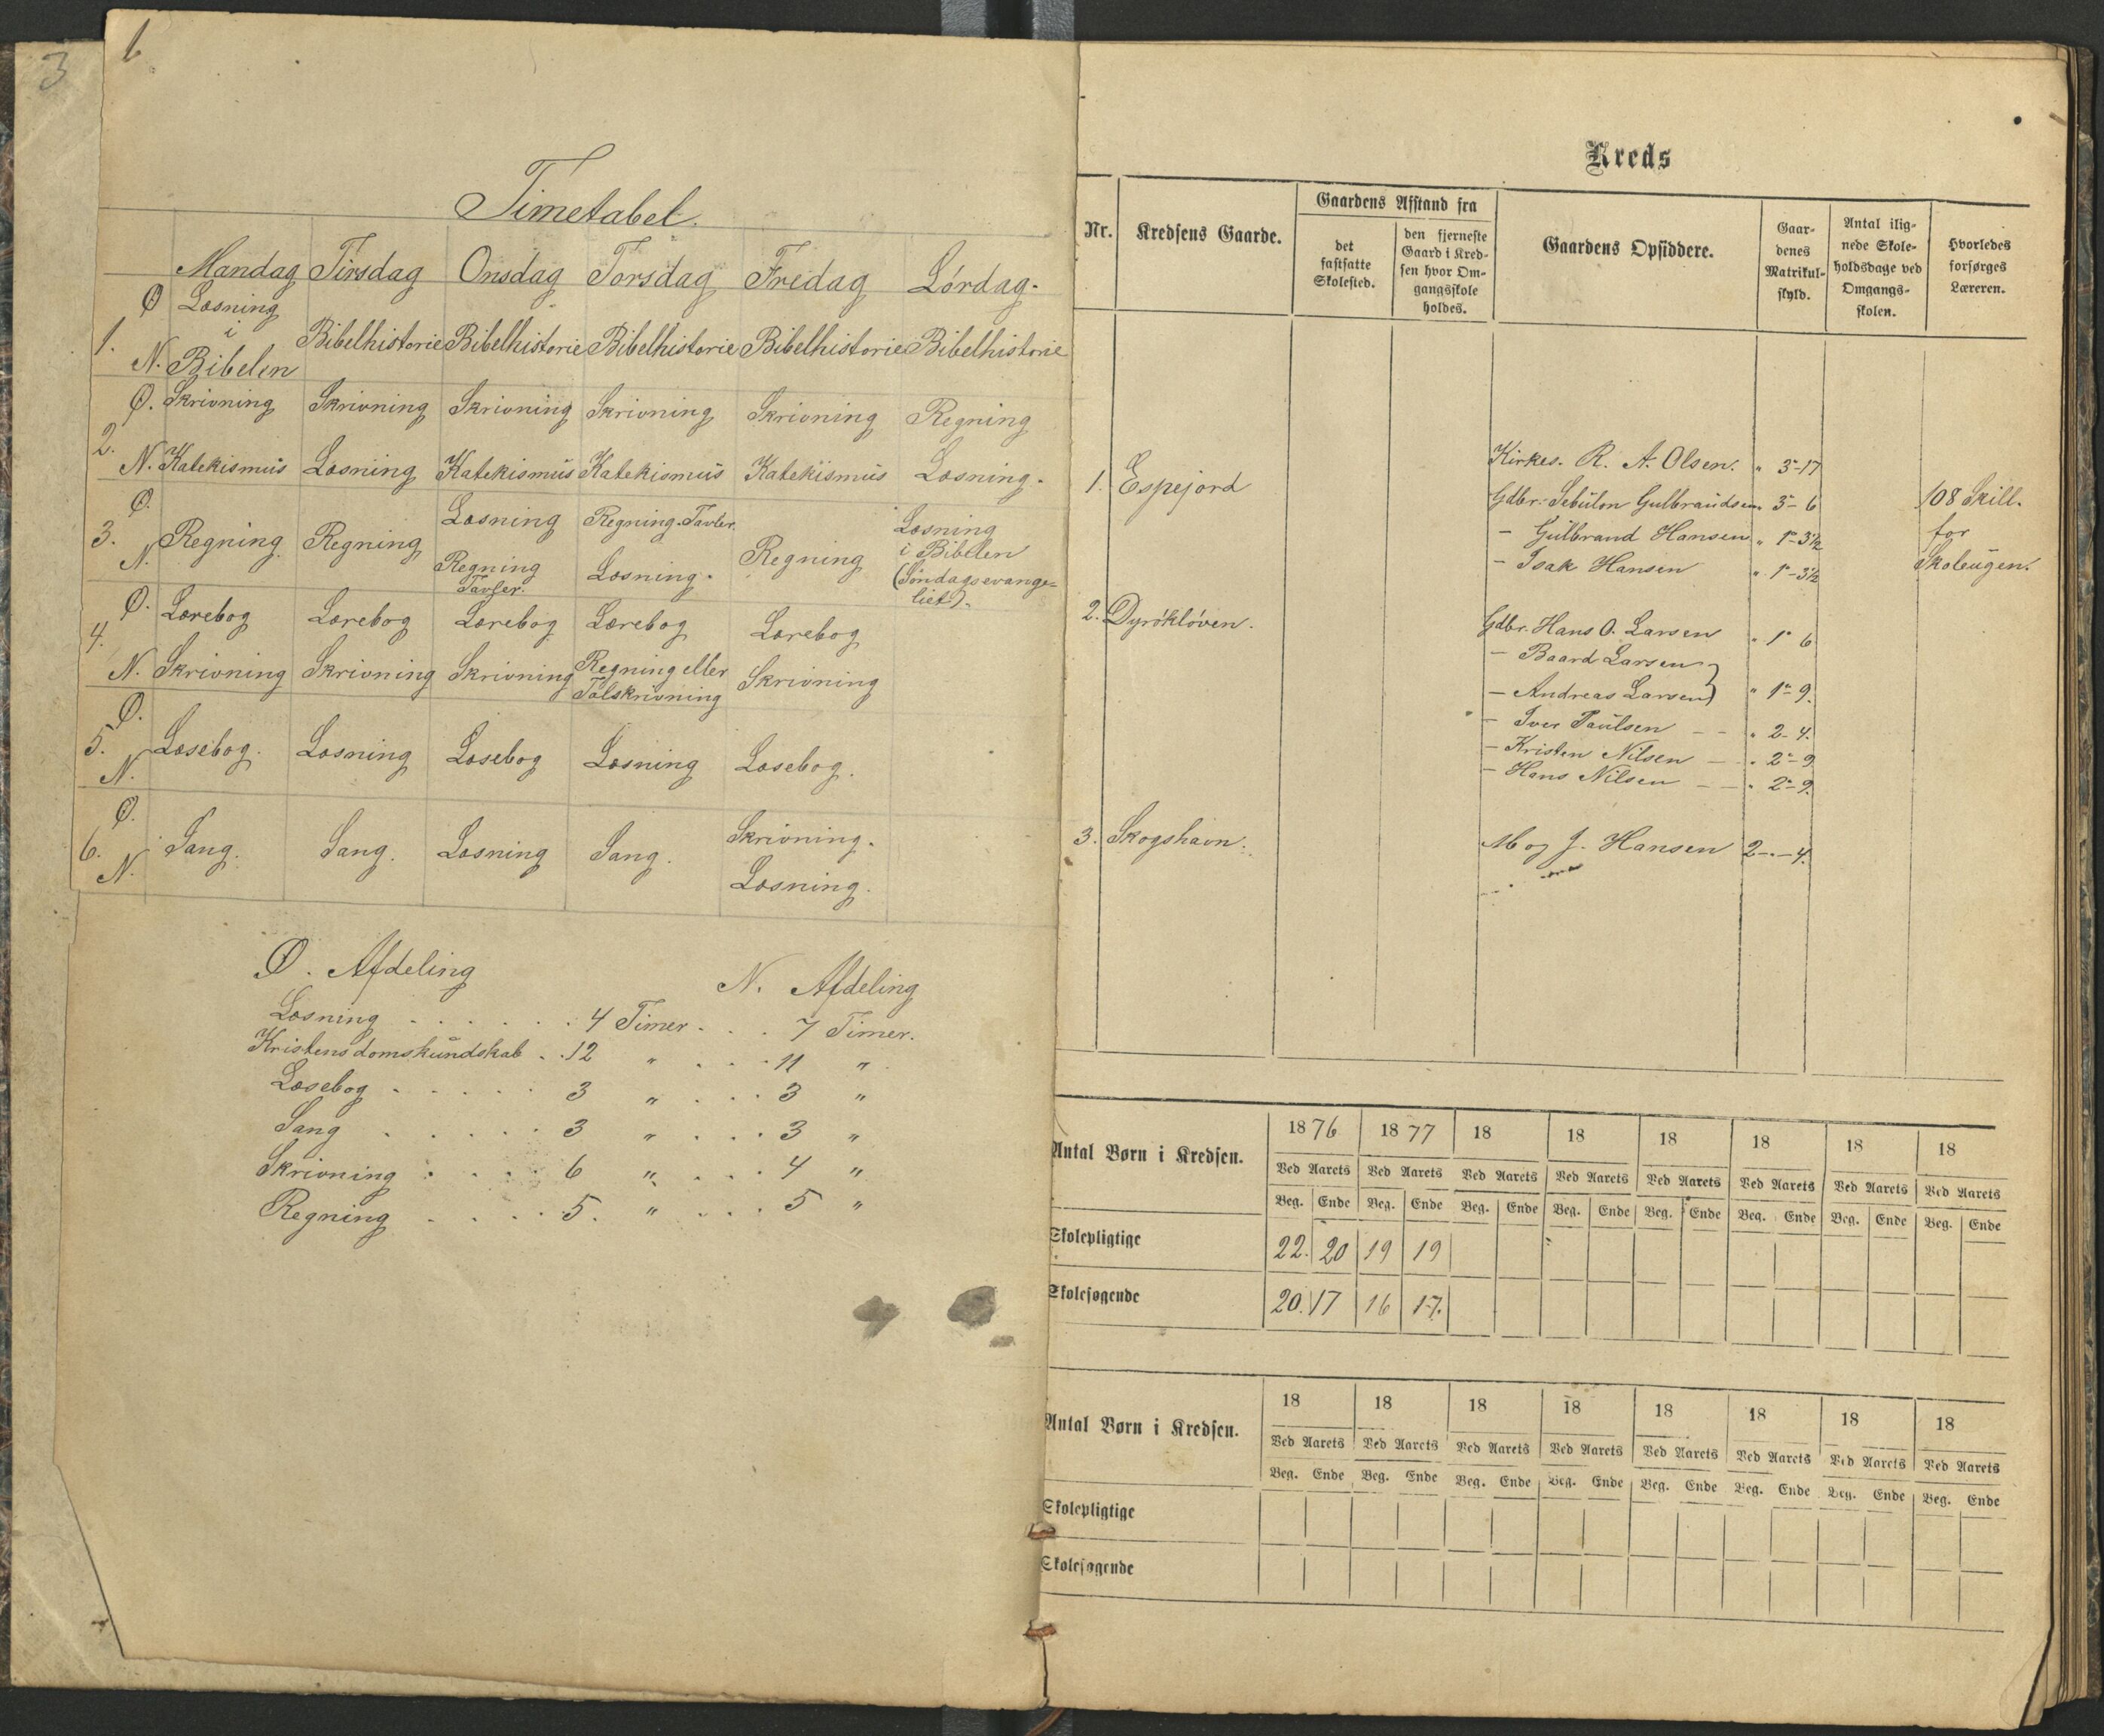 3
1
Timetabel.
Mandag Tirsdag Onsdag Torsdag Fredag Lørdag.
Ø Læsning
1. i Bibelhistorie Bibelhistorie Bibelhistorie Bibelhistorie Bibelhistorie
N. Bibelen
Ø. Skrivning Skrivning Skrivning Skrivning Skrivning Regning
2.
N. Katekismus Læsning Katekismus Katekismus Katekismus Læsning.
Ø. Læsning Regning. Tavler. Læsning
3. Regning Regning Regning i Bibelen
N. Regning Læsning. (Søndagsevange-
Tavler. liet).
Ø. Lærebog Lærebog Lærebog Lærebog Lærebog
4.
N. Skrivning Skrivning Skrivning Regning eller Skrivning
Talskrivning
Ø.
5. Læsebog. Læsning Læsebog Læsning Læsebog.
N.
Ø. Skrivning.
6. Sang. Sang. Læsning Sang.
N. Læsning.
Ø. Afdeling N. Afdeling
Læsning . . . . . . 4 Timer . . . 7 Timer.
Kristendomskundskab . . 12 " . . . 11 "
Læsebog . . . . . 3 " . . . 3 "
Sang . . . . . 3 " . . . 3 "
Skrivning . . . . 6 " . . . 4 "
Regning . . . . 5. " . . . 5 "
Kreds
Nr.
Kredsens Gaarde.
Gaardens Afstand fra
det
fastsatte
Skolested.
den fjerneste
Gaard i Kred-
sen hvor Om-
gangsskole
holdes.
Gaardens Opsiddere.
Gaar-
denes
Matrikul-
skyld.
Antal ilig-
nede Skole-
holdsdage ved
Omgangs-
skolen.
Hvorledes
forsørges
Læreren.
Kirkes. R. A. Olsen. " 3-17
1. Espejord
Gdbr. Sebulon Gulbrandsen " 3- 6 108 Skill.
- Gulbrand Hansen " 1-3½ for
- Isak Hansen " 1-3½ Skoleugen.
2. Dyrökløven.
Gdbr. Hans O. Larsen " 1" 6
- Baard Larsen }
- Andreas Larsen } " 1-9.
- Iver Paulsen - - " 2-4.
- Kristen Nilsen - " 2-9
- Hans Nilsen - - " 2-9.
3. Skogshavn. M og J. Hansen 2-"-4.
Antal Børn i Kredsen. 1876 1877 18 18 18 18 18 18
Ved Aarets Ved Aarets Ved Aarets Ved Aarets Ved Aarets Ved Aarets Ved Aarets Ved Aarets
Beg. Ende Beg. Ende Beg. Ende Beg. Ende Beg. Ende Beg. Ende Beg. Ende Beg. Ende
Skolepligtige 22. 20 19 19
Skolesøgende 20. 17 16 17.
Antal Børn i Kredsen. 18 18 18 18 18 18 18 18
Ved Aarets Ved Aarets Ved Aarets Ved Aarets Ved Aarets Ved Aarets Ved Aarets Ved Aarets
Beg. Ende Beg. Ende Beg. Ende Beg. Ende Beg. Ende Beg. Ende Beg. Ende Beg. Ende
Skolepligtige
Skolesøgende